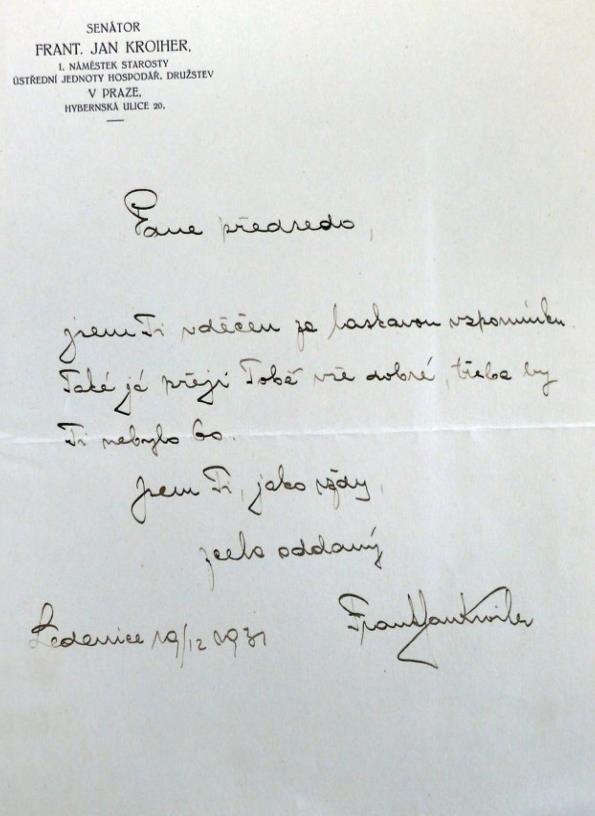 SENÁTOR
FRANT. JAN KROIHER,
1. NÁMĚSTEK STAROSTY
ÚSTŘEDNÍ JEDNOTY HOSPODÁŘ. DRUŽSTEV
V PRAZE,
HYBERNSKÁ ULICE 20.
Pane předsedo,
jsem Ti vděčen za laskavou vzpomínku.
Také já přeji Tobě vše dobré, třeba by
Ti nebylo 60.
Jsem Ti, jako vždy,
zcela oddaný
Ledenice 19/12 1931 FrantJanKroiher